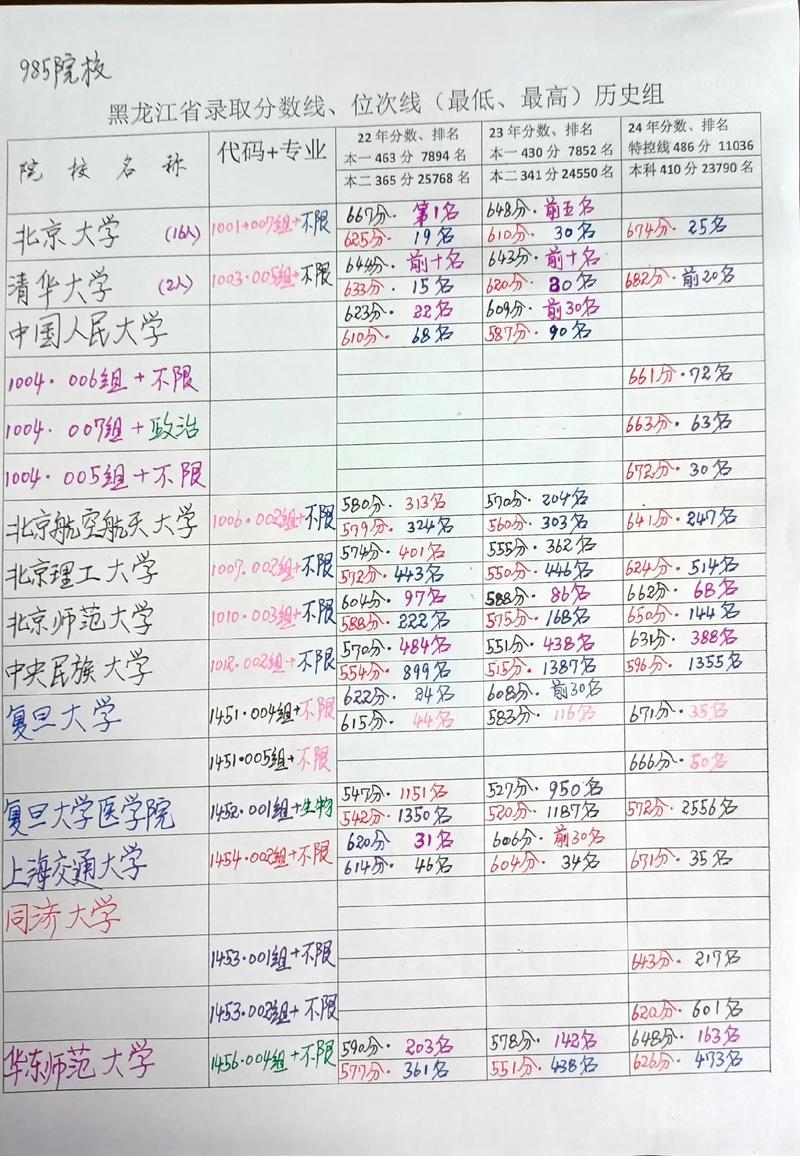 985院校
黑龙江省录取分数线、位次线（最低、最高）历史组
院校名称 代码+专业 22年分数、排名 23年分数、排名 24年分数、排名
本一 463分 7894名 本一 430分 7852名 特控线 486分 11036
本二 365分 25768名 本二 341分 24550名 本科 410分 23790名
667分·第1名 648分·前五名
北京大学 (16人) 1001+007组+不限 625分·19名 610分·30名 674分·25名
644分·前十名 643分·前十名
清华大学 (2人) 1003·005组+不限 633分·15名 620分·20名 682分·前20名
623分·22名 609分·前30名
中国人民大学 610分·68名 587分·90名
1004·006组+不限 661分·72名
1004·007组+政治 663分·63名
1004·005组+不限 672分·30名
580分·313名 570分·204名
北京航空航天大学 1006·002组+不限 579分·324名 560分·303名 641分·247名
574分·401名 555分·362名
北京理工大学 1007·002组+不限 572分·443名 550分·446名 624分·514名
604分·97名 588分·86名 662分·68名
北京师范大学 1010·003组+不限 588分·222名 575分·168名 650分·144名
570分·484名 551分·438名 631分·388名
中央民族大学 1012·002组+不限 554分·899名 515分·1387名 596分·1355名
622分·24名 608分·前30名
复旦大学 1451·004组+不限 615分·44名 583分·116名 671分·35名
1451·005组+不限 666分·50名
547分·1151名 527分·950名
复旦大学医学院 1452·001组+生物 542分·1350名 520分·1187名 572分·2556名
620分 31名 606分·前30名
上海交通大学 1454·002组+不限 614分·46名 604分·34名 671分·35名
同济大学
1453·001组+不限 643分·217名
1453·002组+不限 620分·601名
590分·203名 578分·142名 648分·163名
华东师范大学 1456·004组+不限 577分·361名 551分·438名 626分·473名